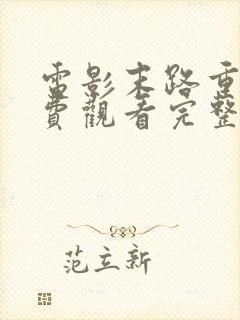 電影末路重
費觀看完整
范立新